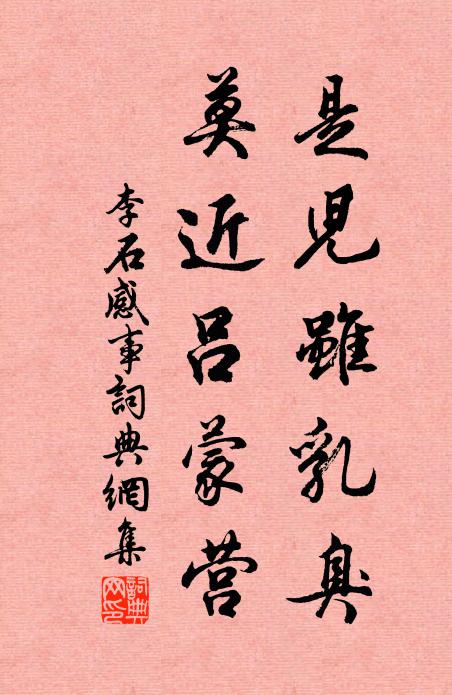 是兒雖乳臭
莫近呂蒙营
李石感事詞典網集
詞典网印